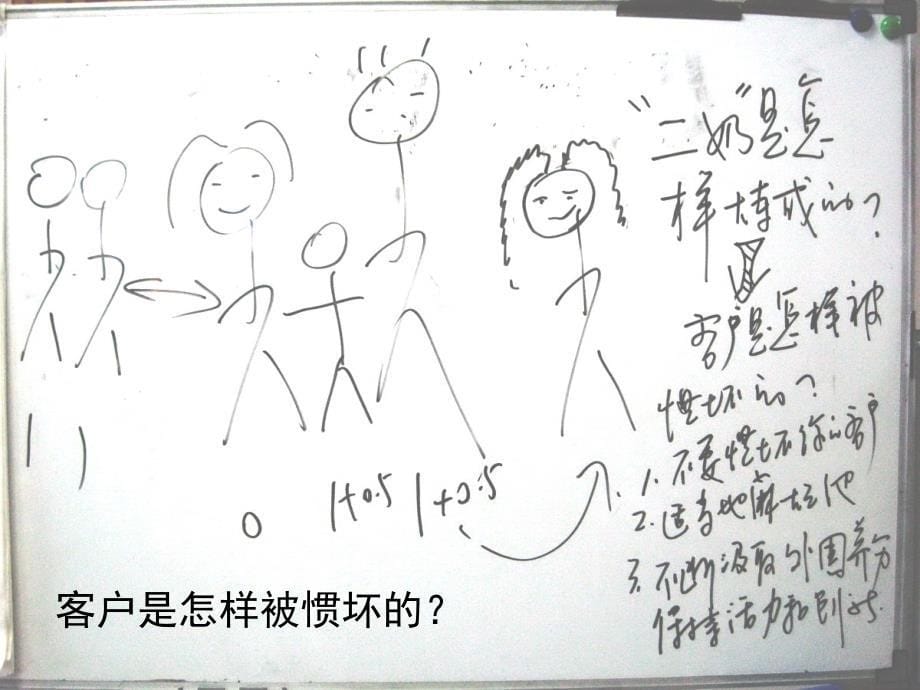 “二奶”是怎
样炼成的？
客户是怎样被
惯坏的？
1. 不要惯坏你的客户
2. 适当地
3. 不断汲取外围养分
保持活力和
0 1+0.5 1+0.5 1.
客户是怎样被惯坏的？